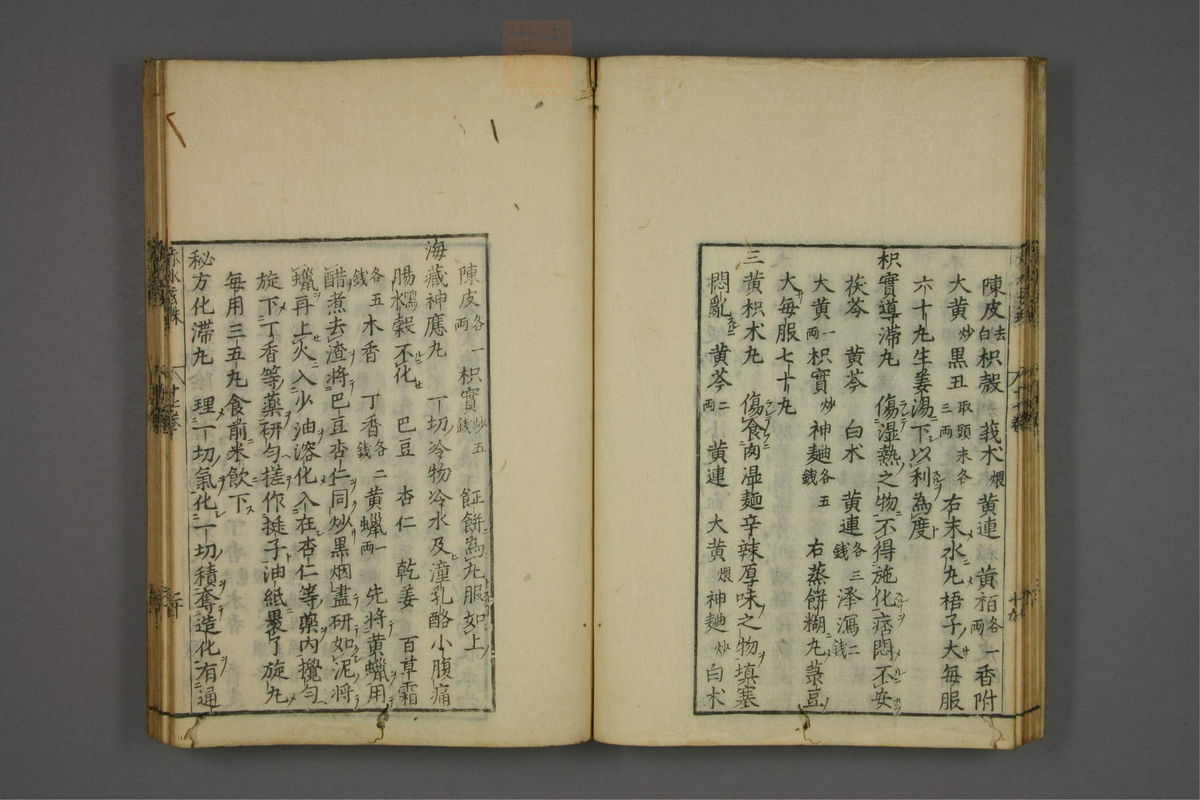 陳皮去白枳殼 莪朮煨黃連 黃栢各一兩香附
大黃炒黑丑取頭末各三兩右末水丸梧子大每服
六十丸生姜湯下以利為度
枳實導滯丸 傷湿熱之物不得施化痞悶不安
茯苓 黃芩 白朮 黃連各三錢澤瀉二錢
大黃一兩枳實炒神麯各五錢 右蒸餅糊丸菉豆
大每服七十丸
三黃枳朮丸 傷食肉湿麺辛辣厚味之物填塞
悶亂 黃芩二兩 黃連 大黃煨神麯炒白朮
陳皮各一兩枳實炒五錢 飪餅為丸服如上
海藏神應丸 一切冷物冷水及潼乳酪小腹痛
腸 水穀不化 巴豆 杏仁 乾姜 百草霜
各五錢木香 丁香各二錢黃蠟一兩 先將黃蠟用
醋煮去渣將巴豆杏仁同炒黑烟盡研如泥將
蠟再上火入少油溶化入在杏仁等藥內攪勻
旋下丁香等藥研勻搓作挺子油紙裹了旋丸
每用三五丸食前米飲下
秘方化滯丸 理一切氣化一切積奪造化有通
赤水玄珠
十九
二十